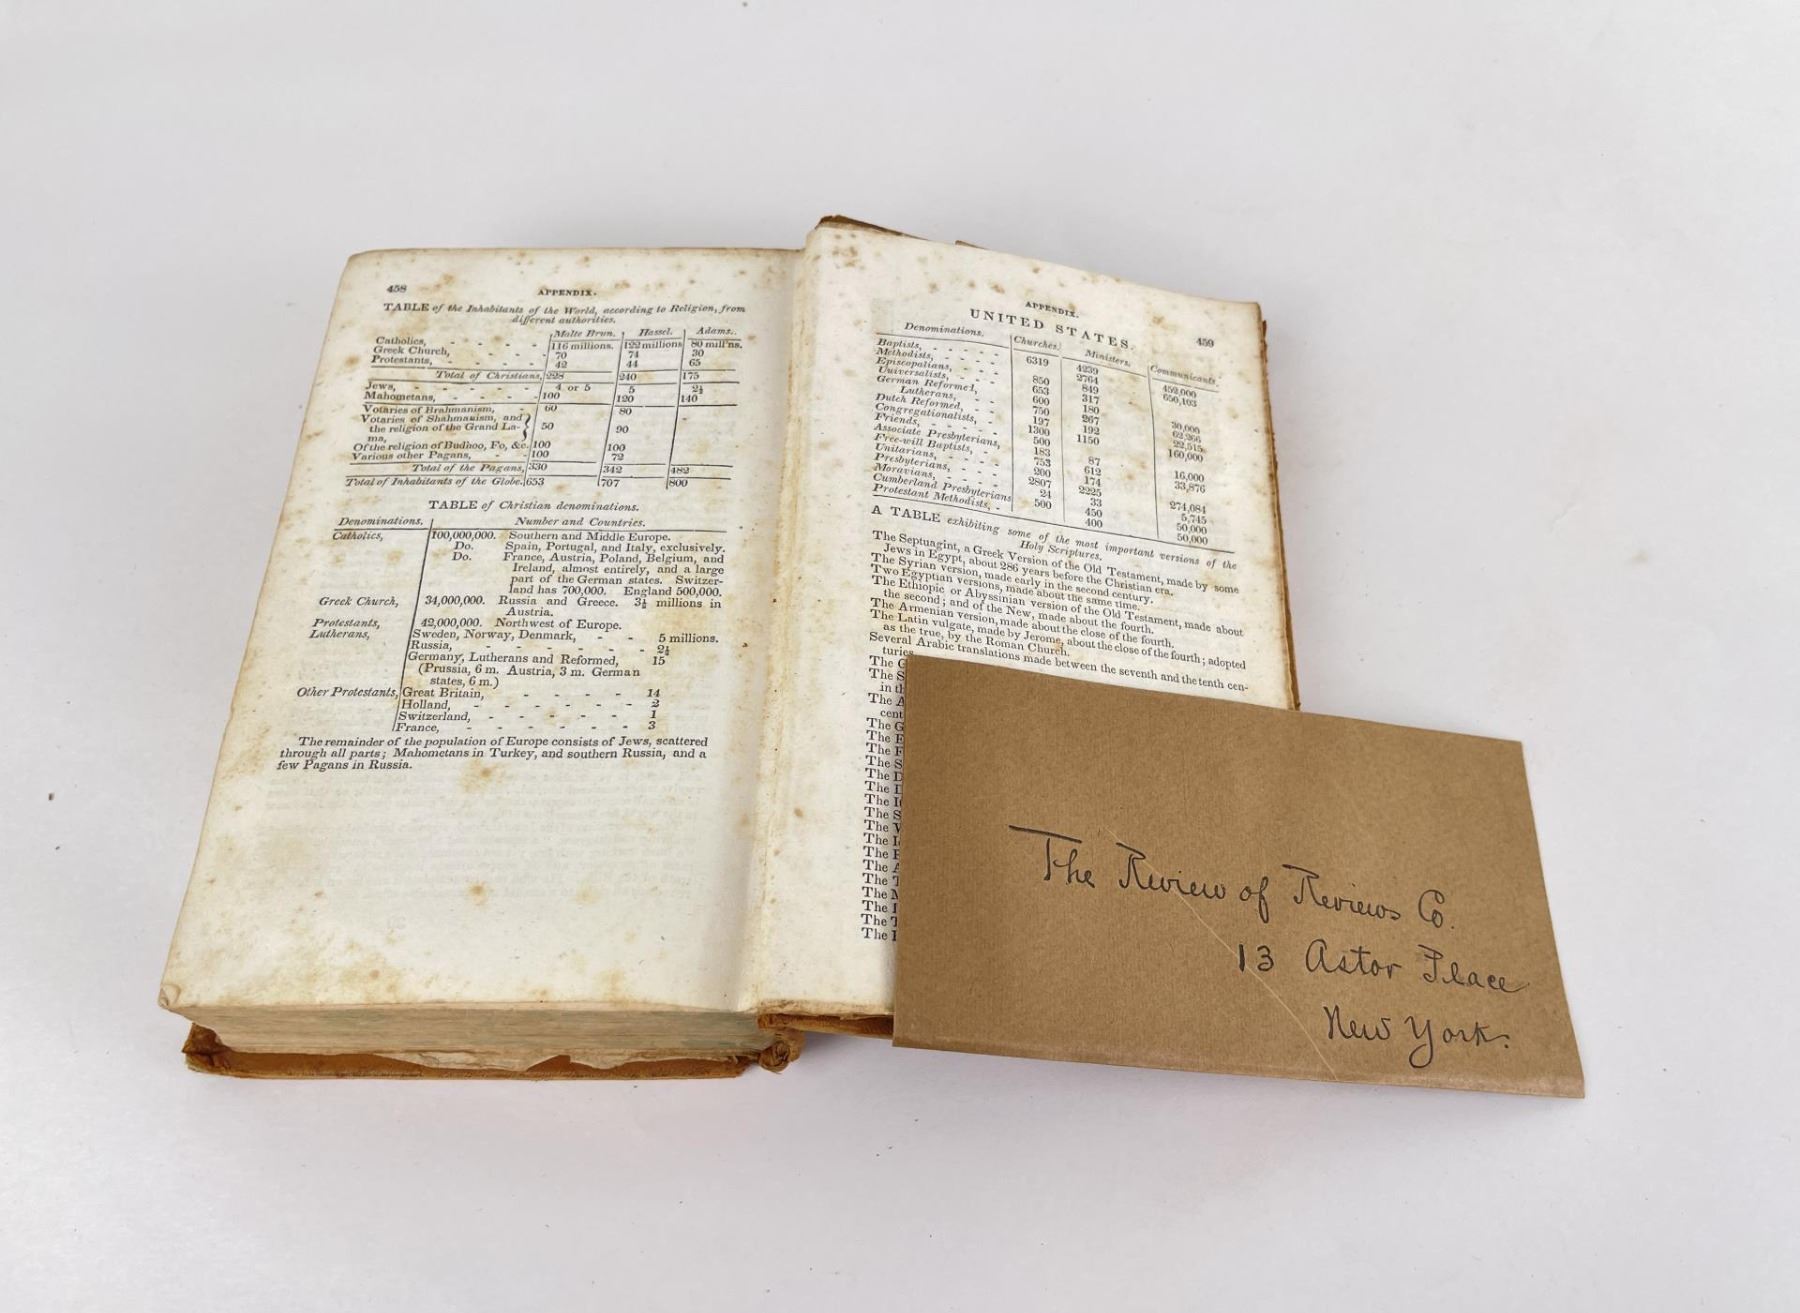 458
APPENDIX.
TABLE of the Inhabitants of the World, according to Religion, from
different authorities.
Malte Brun. Hassel. Adams.
Catholics, - - - - 116 millions. 122 millions 80 mill'ns.
Greek Church, - - - - 70 74 30
Protestants, - - - - 42 44 65
Total of Christians, 228 240 175
Jews, - - - - - 4 or 5 5 2½
Mahometans, - - - - 100 120 140
Votaries of Brahmanism, - 60 80
Votaries of Shahmanism, and
the religion of the Grand La- 50 90
ma,
Of the religion of Budhoo, Fo, &c. 100 100
Various other Pagans, - - 100 72
Total of the Pagans, 330 342 482
Total of Inhabitants of the Globe. 653 707 800
TABLE of Christian denominations.
Denominations. Number and Countries.
Catholics, 100,000,000. Southern and Middle Europe.
Do. Spain, Portugal, and Italy, exclusively.
Do. France, Austria, Poland, Belgium, and
Ireland, almost entirely, and a large
part of the German states. Switzer-
land has 700,000. England 500,000.
Greek Church, 34,000,000. Russia and Greece. 3½ millions in
Austria.
Protestants, 42,000,000. Northwest of Europe.
Lutherans, Sweden, Norway, Denmark, - - 5 millions.
Russia, - - - - - - 2½
Germany, Lutherans and Reformed, 15
(Prussia, 6 m. Austria, 3 m. German
states, 6 m.)
Other Protestants, Great Britain, - - - - 14
Holland, - - - - - - 2
Switzerland, - - - - - 1
France, - - - - - - 3
The remainder of the population of Europe consists of Jews, scattered
through all parts; Mahometans in Turkey, and southern Russia, and a
few Pagans in Russia.
APPENDIX.
459
UNITED STATES.
Denominations. Churches. Ministers. Communicants.
Baptists, - - - - - 6319 4239 452,000
Methodists, - - - - 2764 650,103
Episcopalians, - - - 850 849
Universalists, - - - 653 317
German Reformed, 600 180 30,000
Lutherans, - - 750 267 62,266
Dutch Reformed, - - 197 192 22,515
Congregationalists, - 1300 1150 160,000
Friends, - - - - 500
Associate Presbyterians, 183 87 16,000
Free-will Baptists, - - 753 612 33,876
Unitarians, - - - 200 174
Presbyterians, - - - 2807 2225 274,084
Moravians, - - - - 24 33 5,745
Cumberland Presbyterians 500 450 50,000
Protestant Methodists, - 400 50,000
A TABLE exhibiting some of the most important versions of the
Holy Scriptures.
The Septuagint, a Greek Version of the Old Testament, made by some
Jews in Egypt, about 286 years before the Christian era.
The Syrian version, made early in the second century.
Two Egyptian versions, made about the same time.
The Ethiopic or Abyssinian version of the Old Testament, made about
the second; and of the New, made about the fourth.
The Armenian version, made about the close of the fourth.
The Latin vulgate, made by Jerome, about the close of the fourth; adopted
as the true, by the Roman Church.
Several Arabic translations made between the seventh and the tenth cen-
turies
The G
The S
in th
The A
cent
The G
The E
The F
The S
The D
The D
The
The S
The
The
The
The A
The
The
The
The
The
The Review of Reviews Co.
13 Astor Place
New York.